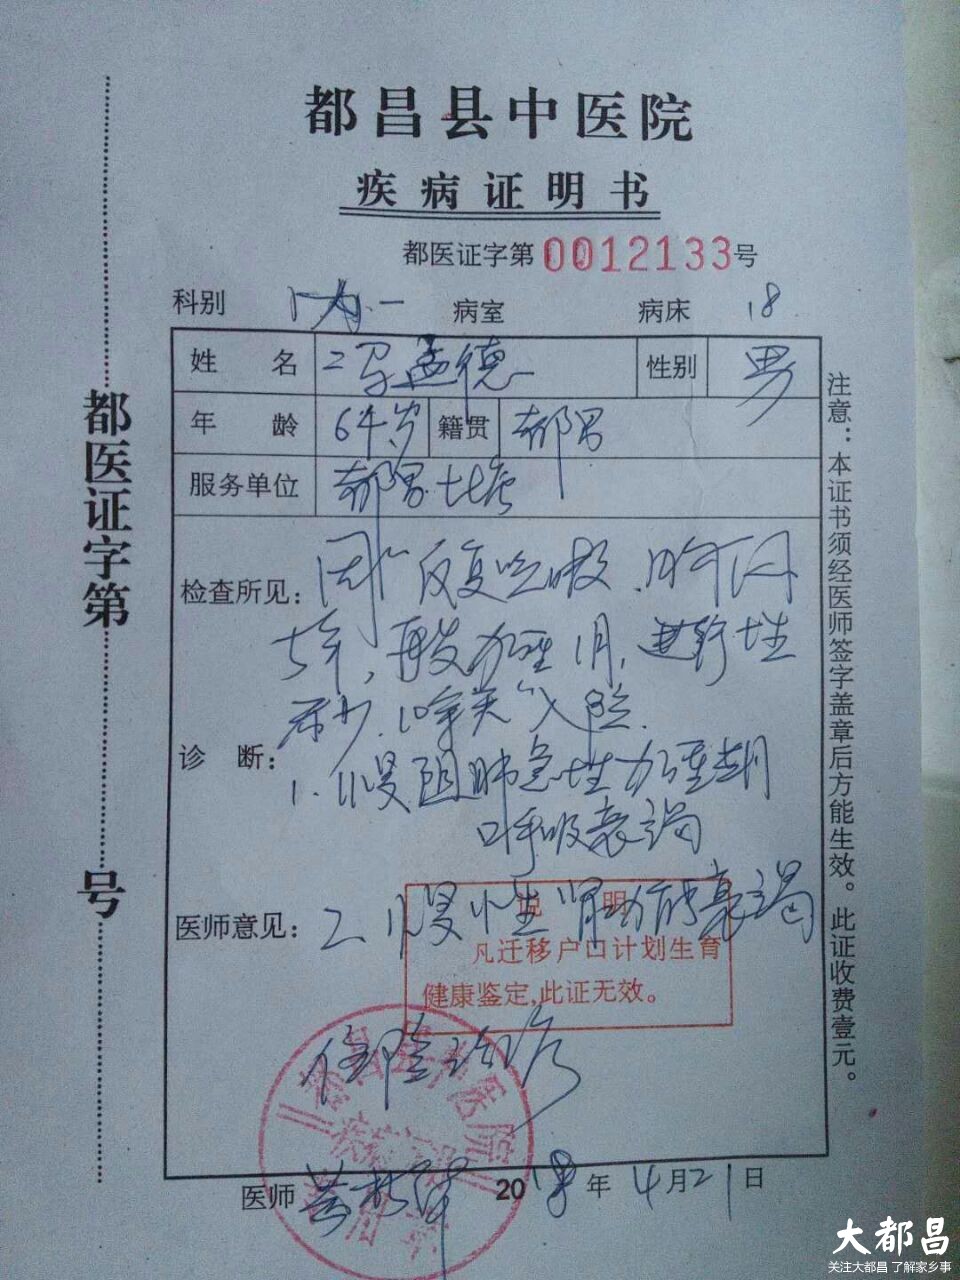 都昌县中医院
疾病证明书
都医证字第0012133号
科别 内一 病室 病床 18
姓名 冯孟德 性别 男
年龄 64岁 籍贯 都昌
服务单位 都昌
检查所见: 因"反复咳嗽、胸闷
年,再发加重1月,进行性
尿少"入院
诊断:
1. 慢阻肺急性加重期
呼吸衰竭
医师意见: 2、慢性肾功能衰竭
说明
凡迁移户口计划生育
健康鉴定,此证无效。
住院治疗
医师 2018年4月21日
注意:本证书须经医师签字盖章后方能生效。此证收费壹元。
都医证字第 号
大都昌
关注大都昌 了解家乡事